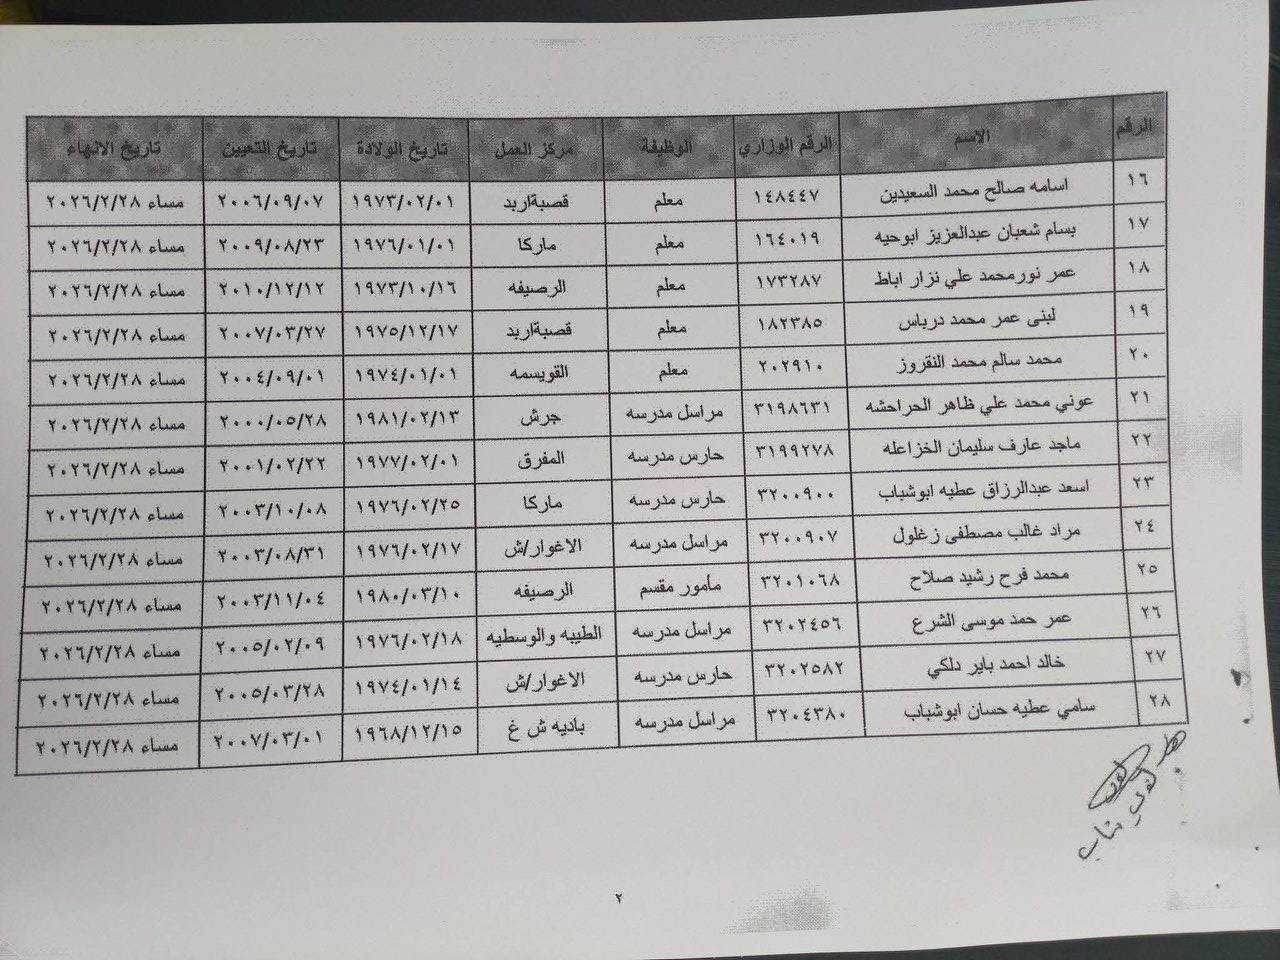 الرقم الاسم الرقم الوزاري الوظيفة مركز العمل تاريخ الولادة تاريخ التعيين تاريخ الانهاء
١٦ اسامه صالح محمد السعيدين ١٤٨٤٤٧ معلم قصبةاربد ١٩٧٣/٠٢/٠١ ٢٠٠٦/٠٩/٠٧ مساء ٢٠٢٦/٢/٢٨
١٧ بسام شعبان عبدالعزيز ابوحيه ١٦٤٠١٩ معلم ماركا ١٩٧٦/٠١/٠١ ٢٠٠٩/٠٨/٢٣ مساء ٢٠٢٦/٢/٢٨
١٨ عمر نورمحمد علي نزار اباط ١٧٣٢٨٧ معلم الرصيفه ١٩٧٣/١٠/١٦ ٢٠١٠/١٢/١٢ مساء ٢٠٢٦/٢/٢٨
١٩ لبنى عمر محمد درباس ١٨٢٣٨٥ معلم قصبةاربد ١٩٧٥/١٢/١٧ ٢٠٠٧/٠٣/٢٧ مساء ٢٠٢٦/٢/٢٨
٢٠ محمد سالم محمد النقروز ٢٠٢٩١٠ معلم القويسمه ١٩٧٤/٠١/٠١ ٢٠٠٤/٠٩/٠١ مساء ٢٠٢٦/٢/٢٨
٢١ عوني محمد علي ظاهر الحراحشه ٣١٩٨٦٣١ مراسل مدرسه جرش ١٩٨١/٠٢/١٣ ٢٠٠٠/٠٥/٢٨ مساء ٢٠٢٦/٢/٢٨
٢٢ ماجد عارف سليمان الخزاعله ٣١٩٩٢٧٨ حارس مدرسه المفرق ١٩٧٧/٠٢/٠١ ٢٠٠١/٠٢/٢٢ مساء ٢٠٢٦/٢/٢٨
٢٣ اسعد عبدالرزاق عطيه ابوشباب ٣٢٠٠٩٠٠ حارس مدرسه ماركا ١٩٧٦/٠٢/٢٥ ٢٠٠٣/١٠/٠٨ مساء ٢٠٢٦/٢/٢٨
٢٤ مراد غالب مصطفى زغلول ٣٢٠٠٩٠٧ مراسل مدرسه الاغوار/ش ١٩٧٦/٠٢/١٧ ٢٠٠٣/٠٨/٣١ مساء ٢٠٢٦/٢/٢٨
٢٥ محمد فرح رشيد صلاح ٣٢٠١٠٦٨ مأمور مقسم الرصيفه ١٩٨٠/٠٣/١٠ ٢٠٠٣/١١/٠٤ مساء ٢٠٢٦/٢/٢٨
٢٦ عمر حمد موسى الشرع ٣٢٠٢٤٥٦ مراسل مدرسه الطيبه والوسطيه ١٩٧٦/٠٢/١٨ ٢٠٠٥/٠٢/٠٩ مساء ٢٠٢٦/٢/٢٨
٢٧ خالد احمد باير دلكي ٣٢٠٢٥٨٢ حارس مدرسه الاغوار/ش ١٩٧٤/٠١/١٤ ٢٠٠٥/٠٣/٢٨ مساء ٢٠٢٦/٢/٢٨
٢٨ سامي عطيه حسان ابوشباب ٣٢٠٤٣٨٠ مراسل مدرسه باديه ش غ ١٩٦٨/١٢/١٥ ٢٠٠٧/٠٣/٠١ مساء ٢٠٢٦/٢/٢٨
٢